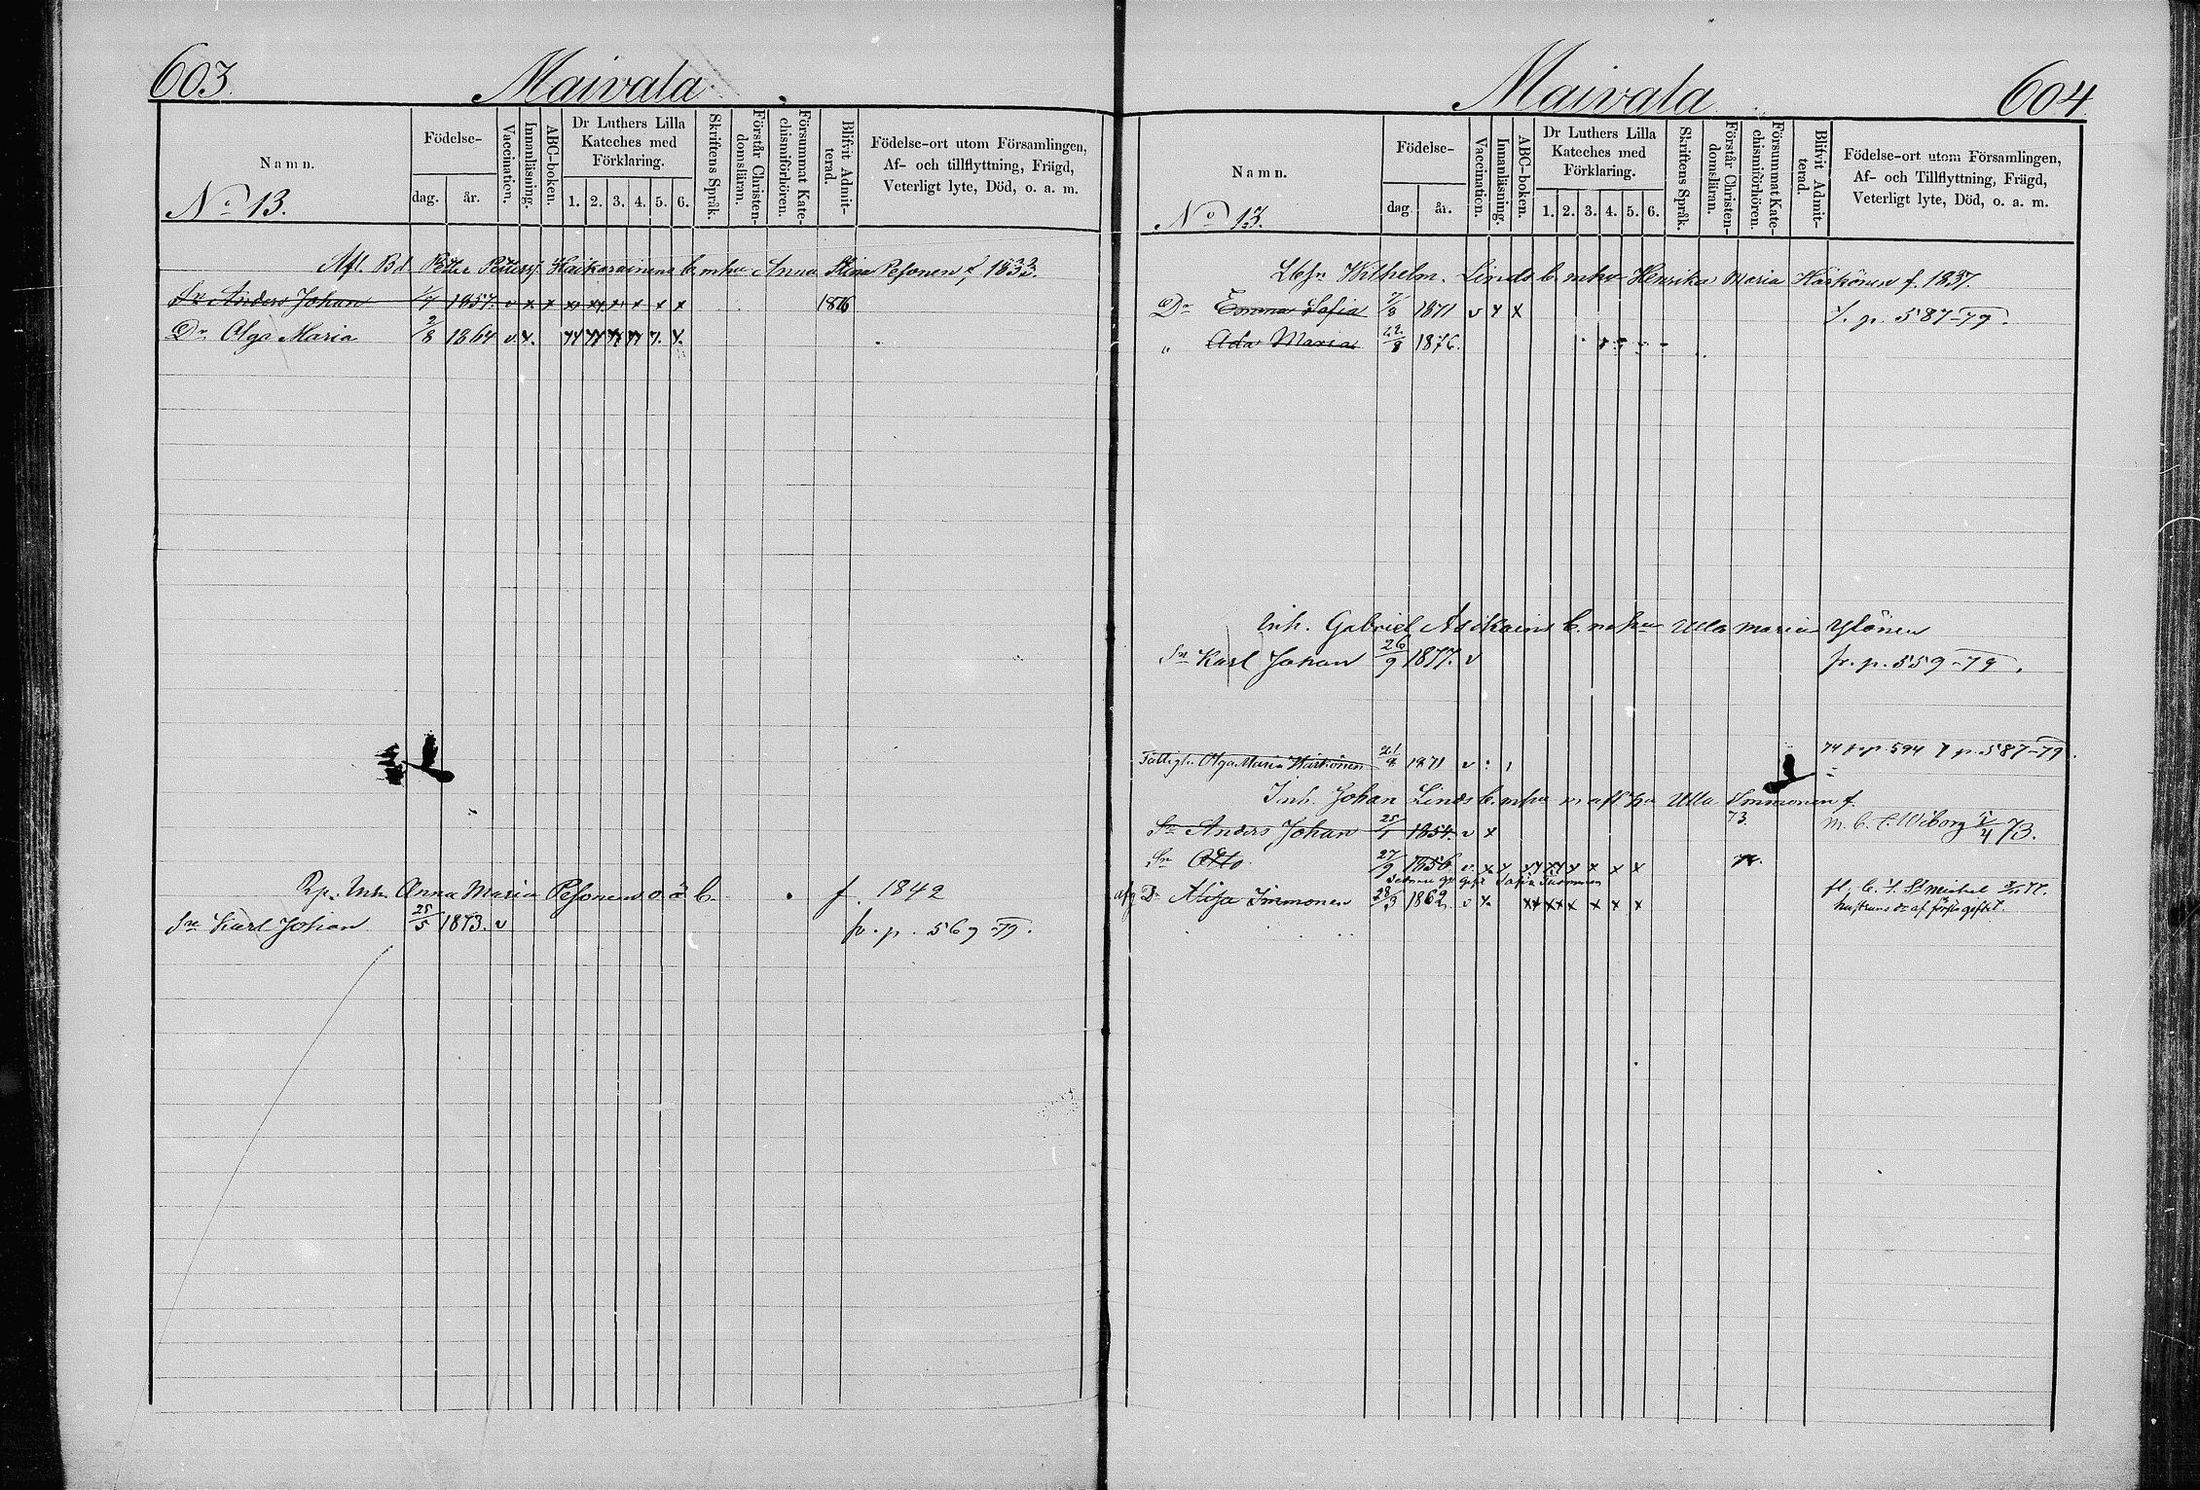 603. Maivala
Namn.
No 13.
Födelse-
dag. år.
Vaccination.
Innanläsning.
ABC-boken.
Dr Luthers Lilla
Kateches med
Förklaring.
1. 2. 3. 4. 5. 6.
Skriftens Språk.
Förstår Christen-
domsläran.
Försummat Kate-
chismiförhören.
Blifvit Admit-
terad.
Födelse-ort utom Församlingen,
Af- och tillflyttning, Frägd,
Veterligt lyte, Död, o. a. m.
Afl. Bd. Petter b. m hu Anna Stina Pesonen f. 1833.
Sn Anders Johan 1/4 1857. v x x x x x x x x 1876
Dr Olga Maria 2/8 1864 v x.
Inh. Anna Maria Pesonens o. ä b. f. 1842
Sn Karl Johan 25/5 1873. v fr. p. 569-79.
Maivala 604
Namn.
No 13.
Födelse-
dag år.
Vaccination.
Innanläsning.
ABC-boken.
Dr Luthers Lilla
Kateches med
Förklaring.
1. 2. 3. 4. 5. 6.
Skriftens Språk.
Förstår Christen-
domsläran.
Försummat Kate-
chismiförhören.
Blifvit Admit-
terad.
Födelse-ort utom Församlingen,
Af- och Tillflyttning, Frägd,
Veterligt lyte, Död, o. a. m.
Wilhelm Linds b. m hu Henrika Maria Häskönen f. 1837.
Dr Emma Sofia 7/8 1871 v x x t. p. 587-79.
" Ada Maria 22/8 1876.
Inh. Gabriel Asikains b. m hu Ulla Maria Ylönen
Sn Karl Johan 26/9 1877. v fr. p. 559-79.
Olga Maria 21/8 1871 v p. 594 t p. 587-79.
Inh. Johan Linds b. m hu Ulla Immonen f.
Sn Anders Johan 25/1 1854. v x 73. m. b. t. Wiborg 4 73.
Sn Otto 27/9 1856 v. x x x x x x x x
Dr Immonen 28/3 1862. v x. x x x x x x b. t. St Michel 77.
hustruns dr af första giftet.